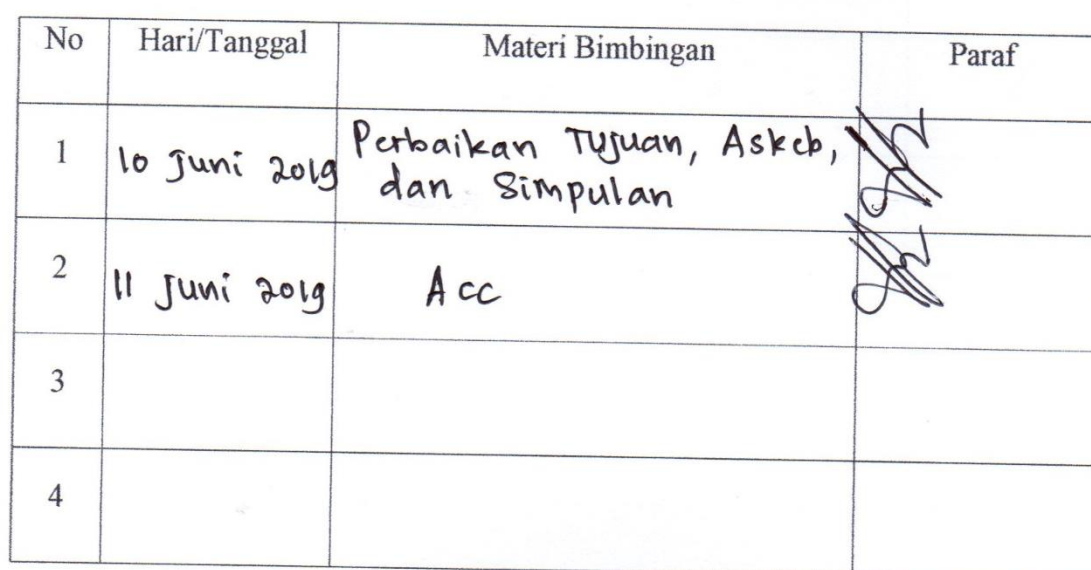 No Hari/Tanggal Materi Bimbingan Paraf
1 10 Juni 2019 Perbaikan Tujuan, Askeb,
dan Simpulan
2 11 Juni 2019 Acc
3
4